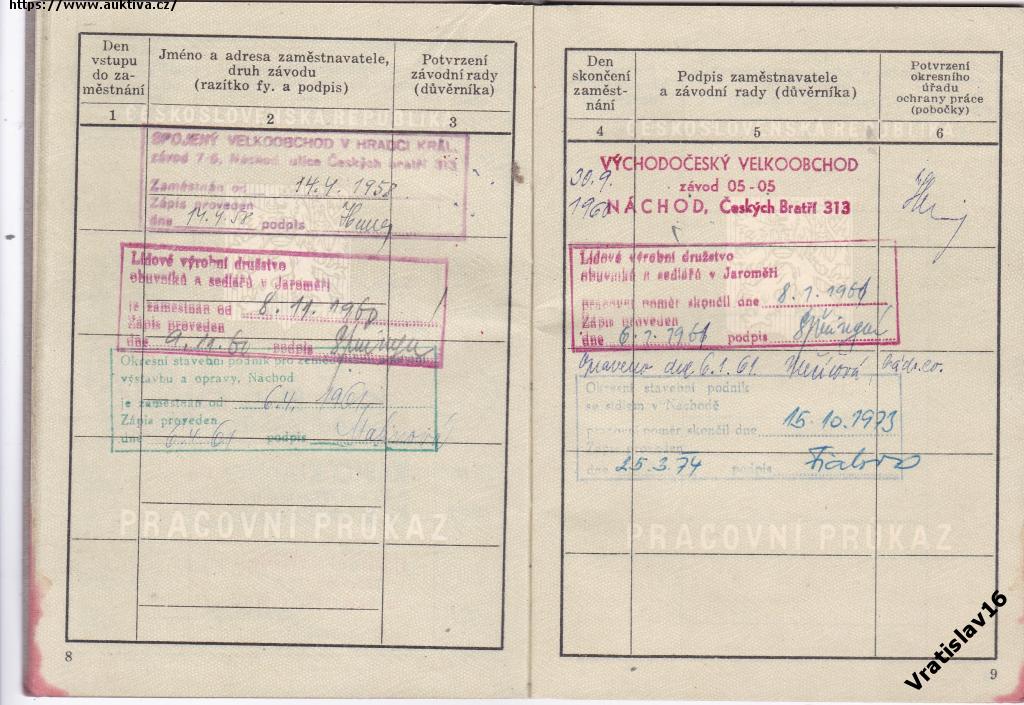 https://www.auktiva.cz/
Den
vstupu
do za-
městnání
Jméno a adresa zaměstnavatele,
druh závodu
(razítko fy. a podpis)
Potvrzení
závodní rady
(důvěrníka)
1
2
3
ČESKOSLOVENSKÁ REPUBLIKA
SPOJENÝ VELKOOBCHOD V HRADCI KRÁL.
závod 7-6, Náchod ulice Českých bratří 313
Zaměstnán od 14.4. 1958
Zápis proveden
dne 14.4.58 podpis
Lidové výrobní družstvo
obuvníků a sedlářů v Jaroměři
je zaměstnán od 8.11.1960
Zápis proveden
dne 9.11.60 podpis
Okresní stavební podnik pro
výstavbu a opravy, Náchod
je zaměstnán od 6.4. 1961
Zápis proveden
dne 6.4.61 podpis
PRACOVNÍ PRŮKAZ
8
Den
skončení
zaměst-
nání
Podpis zaměstnavatele
a závodní rady (důvěrníka)
Potvrzení
okresního
úřadu
ochrany práce
(pobočky)
4
5
6
ČESKOSLOVENSKÁ REPUBLIKA
30.9.
1960
VÝCHODOČESKÝ VELKOOBCHOD
závod 05-05
NÁCHOD, Českých Bratří 313
Lidové výrobní družstvo
obuvníků a sedlářů v Jaroměři
pracovní poměr skončil dne 8.1.1961
Zápis proveden
dne 6.1.1961 podpis
Opraveno dne 6.1.61.
Okresní stavební podnik
se sídlem v Náchodě
pracovní poměr skončil dne 15.10.1973
Zápis proveden
dne 25.3.74 podpis
PRACOVNÍ PRŮKAZ
9
Vratislav16